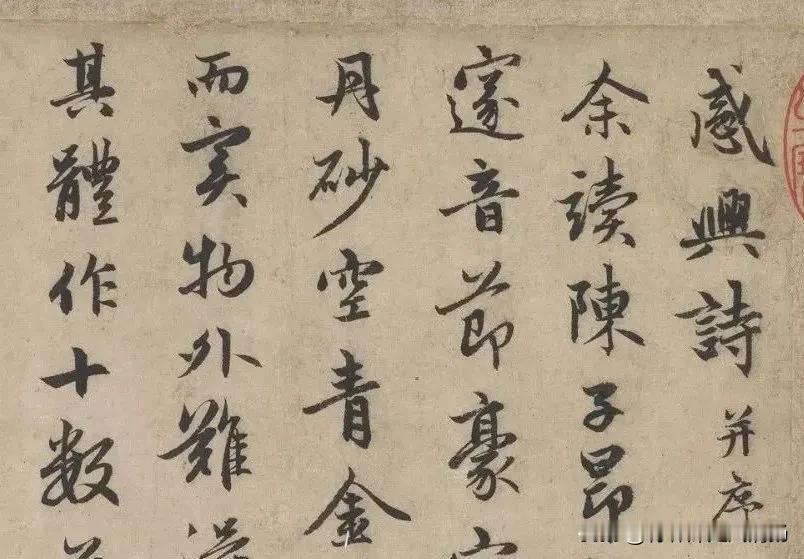 感興詩并序
余讀陳子昂
邃音節豪
丹砂空青金
而実物外難
其體作十數